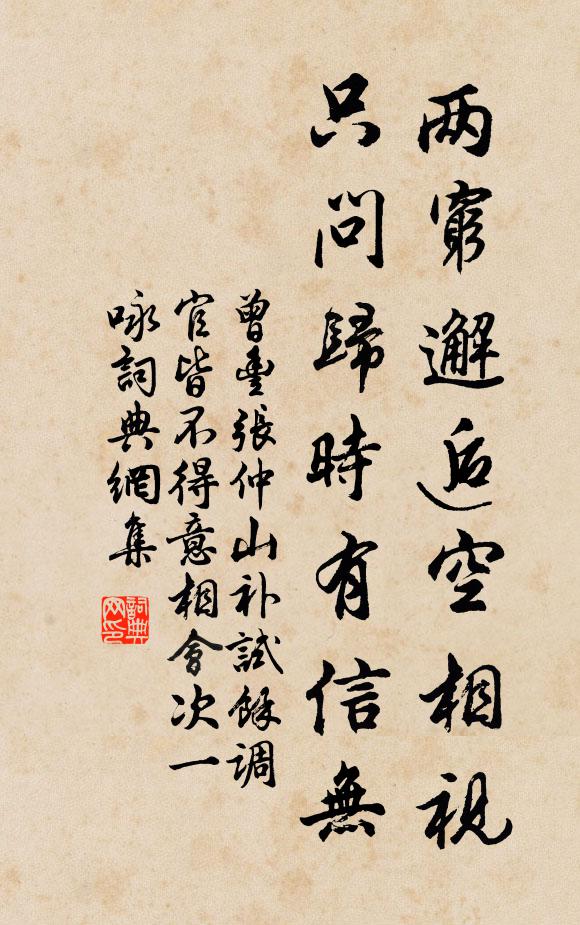 两窮邂逅空相視
只問歸時有信無
曾豐張仲山补試餘调
官皆不得意相會次一
咏詞典網集
詞典
网印